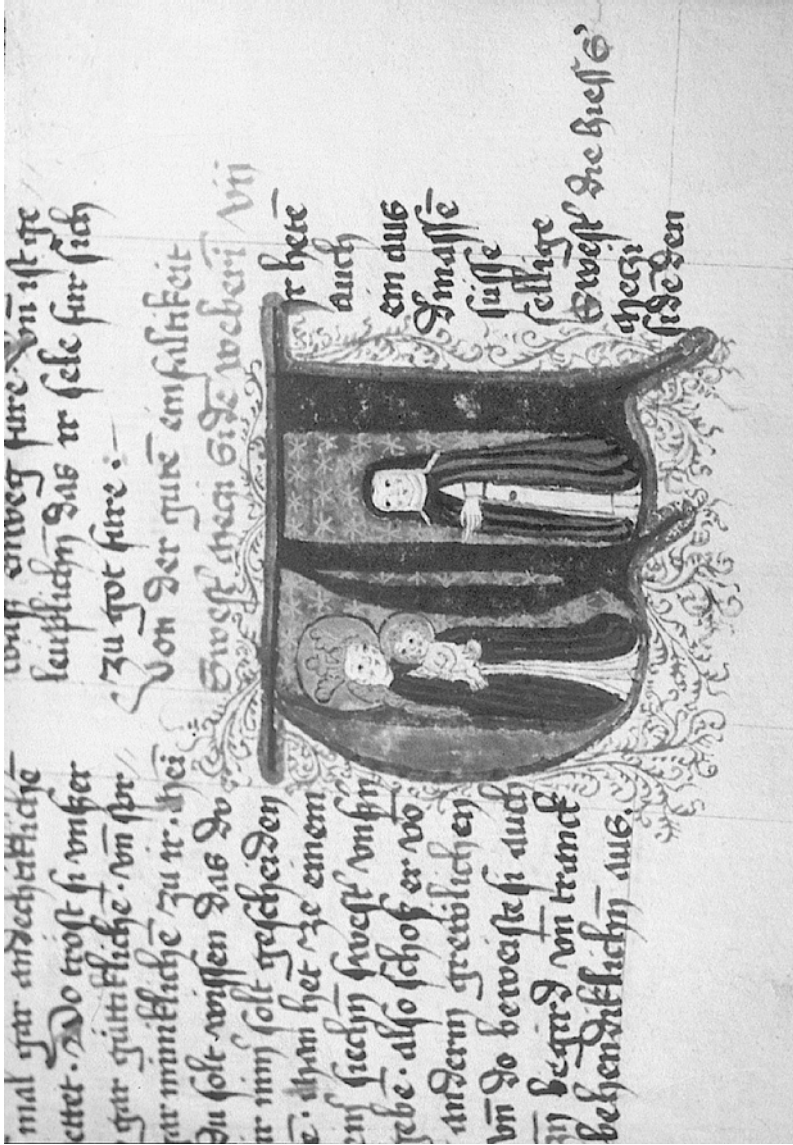 mal gar andechtiklichē
ettet · Do tröst si vnßer
gar güttikliche · vn̄ spr
ar miniklichē zu ir · hei
Du solt wissen das do
ir min solt gescheiden
ē · Man het ze einem
em siechn̄ swest vnßn
gebē · also schoß er vō
andern grewlichen
vn̄ do beweiste si auch
n̄ begird vn̄ trunck
behendiklichn̄ aus.
enweg fure · Vn̄ ist ge
leuplichn̄ das ir sele fur sich
zu got fure :~
Von der gutē einfaltikeit
Swest Meczi Sidēweberī viii
Ir hetē
auch
ein aus
dmassē
süsse
sellige
Swest die hiess S'
Meczi
sidē den